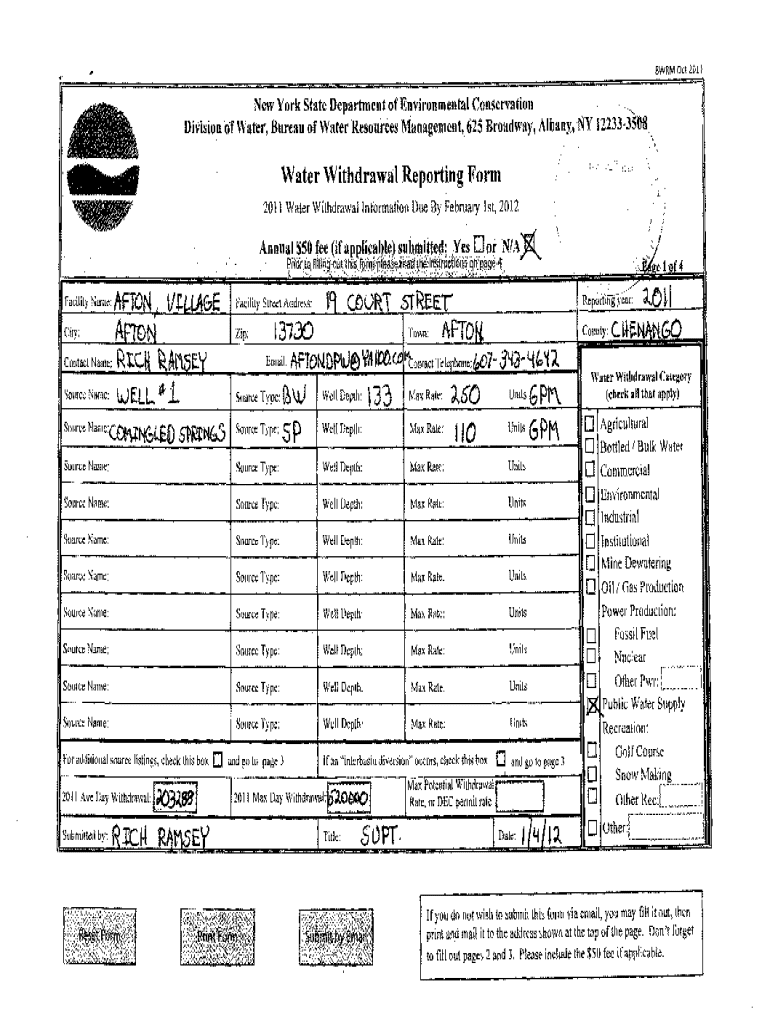 BWRM Oct 2011
New York State Department of Environmental Conservation
Division of Water, Bureau of Water Resources Management, 625 Broadway, Albany, NY 12233-3508
Water Withdrawal Reporting Form
2011 Water Withdrawal Information Due By February 1st, 2012
Annual $50 fee (if applicable) submitted: Yes or N/A
Prior to filling out this form please read the instructions on page 4
Page 1 of 4
Facility Name: AFTON, VILLAGE Facility Street Address: 19 COURT STREET Reporting year: 2011
City: AFTON Zip: 13730 Town: AFTON County: CHENANGO
Contact Name: RICH RAMSEY Email: AFTONDPW@YAHOO.COM Contact Telephone: 607-343-4642
Water Withdrawal Category
(check all that apply)
Source Name: WELL #1 Source Type: BW Well Depth: 133 Max Rate: 250 Units GPM
Agricultural
Source Name: COMINGLED SPRINGS Source Type: SP Well Depth: Max Rate: 110 Units GPM
Bottled / Bulk Water
Source Name: Source Type: Well Depth: Max Rate: Units
Commercial
Environmental
Source Name: Source Type: Well Depth: Max Rate: Units
Industrial
Source Name: Source Type: Well Depth: Max Rate: Units
Institutional
Mine Dewatering
Source Name: Source Type: Well Depth: Max Rate. Units
Oil / Gas Production
Source Name: Source Type: Well Depth: Max Rate: Units
Power Production:
Fossil Fuel
Source Name: Source Type: Well Depth: Max Rate: Units
Nuclear
Other Pwr:
Source Name: Source Type: Well Depth. Max Rate. Units
Public Water Supply
Source Name: Source Type: Well Depth: Max Rate: Units
Recreation:
Golf Course
For additional source listings, check this box and go to page 3 If an "interbasin diversion" occurs, check this box and go to page 3
Snow Making
2011 Ave Day Withdrawal: 203288 2011 Max Day Withdrawal: 620000 Max Potential Withdrawal
Rate, or DEC permit rate
Other Rec:
Submitted by: RICH RAMSEY Title: SUPT. Date: 1/4/12
Other:
Reset Form Print Form Submit by email
If you do not wish to submit this form via email, you may fill it out, then
print and mail it to the address shown at the top of the page. Don't forget
to fill out pages 2 and 3. Please include the $50 fee if applicable.